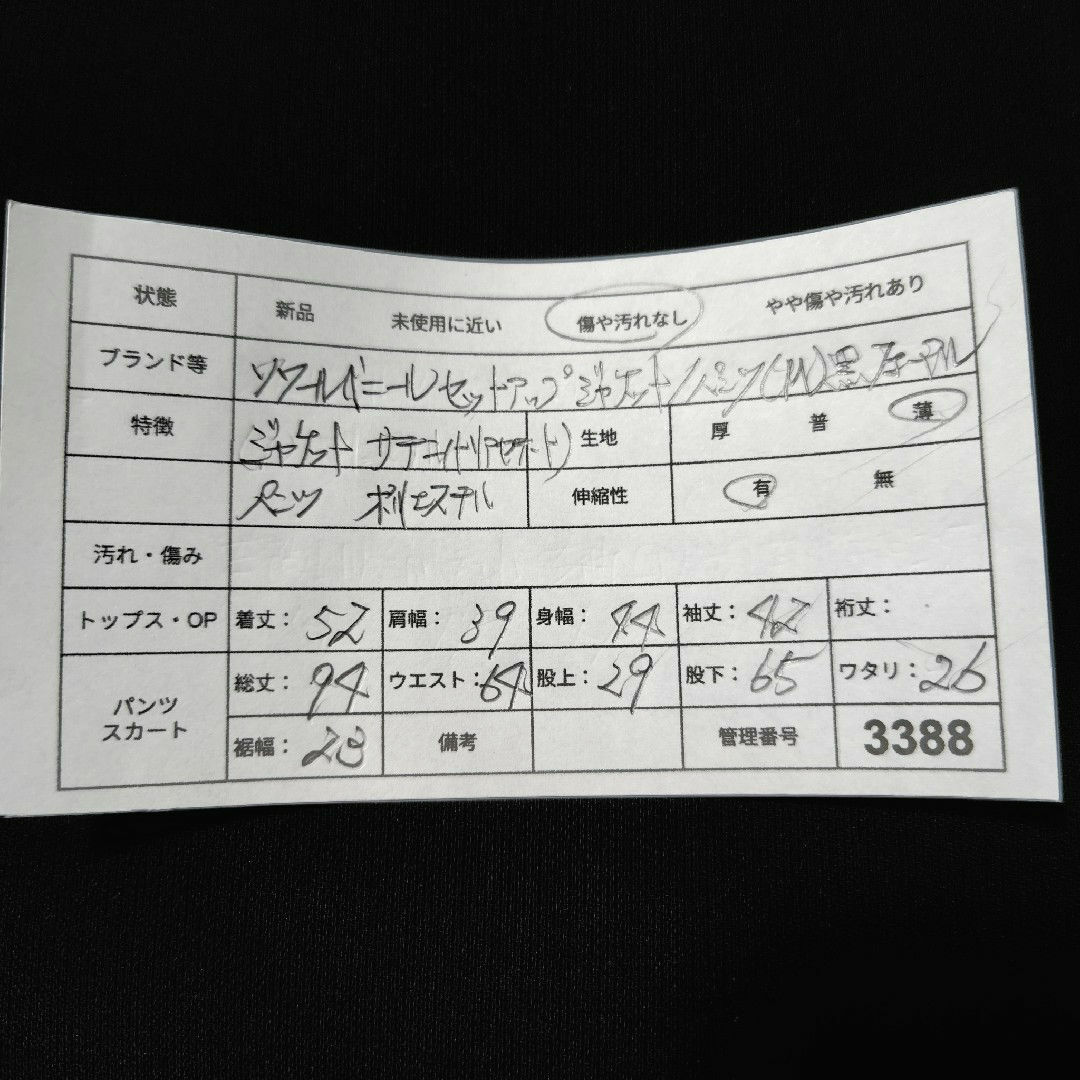 状態 新品 未使用に近い 傷や汚れなし やや傷や汚れあり
ブランド等 ソワールベニール セットアップ ジャケット/パンツ 黒 フォーマル
特徴 ジャケット サテン 生地 厚 普 薄
パンツ ポリエステル 伸縮性 有 無
汚れ・傷み
トップス・OP 着丈: 52 肩幅: 39 身幅: 44 袖丈: 42 裄丈:
パンツ スカート 総丈: 94 ウエスト: 64 股上: 29 股下: 65 ワタリ: 26
裾幅: 23 備考 管理番号 3388